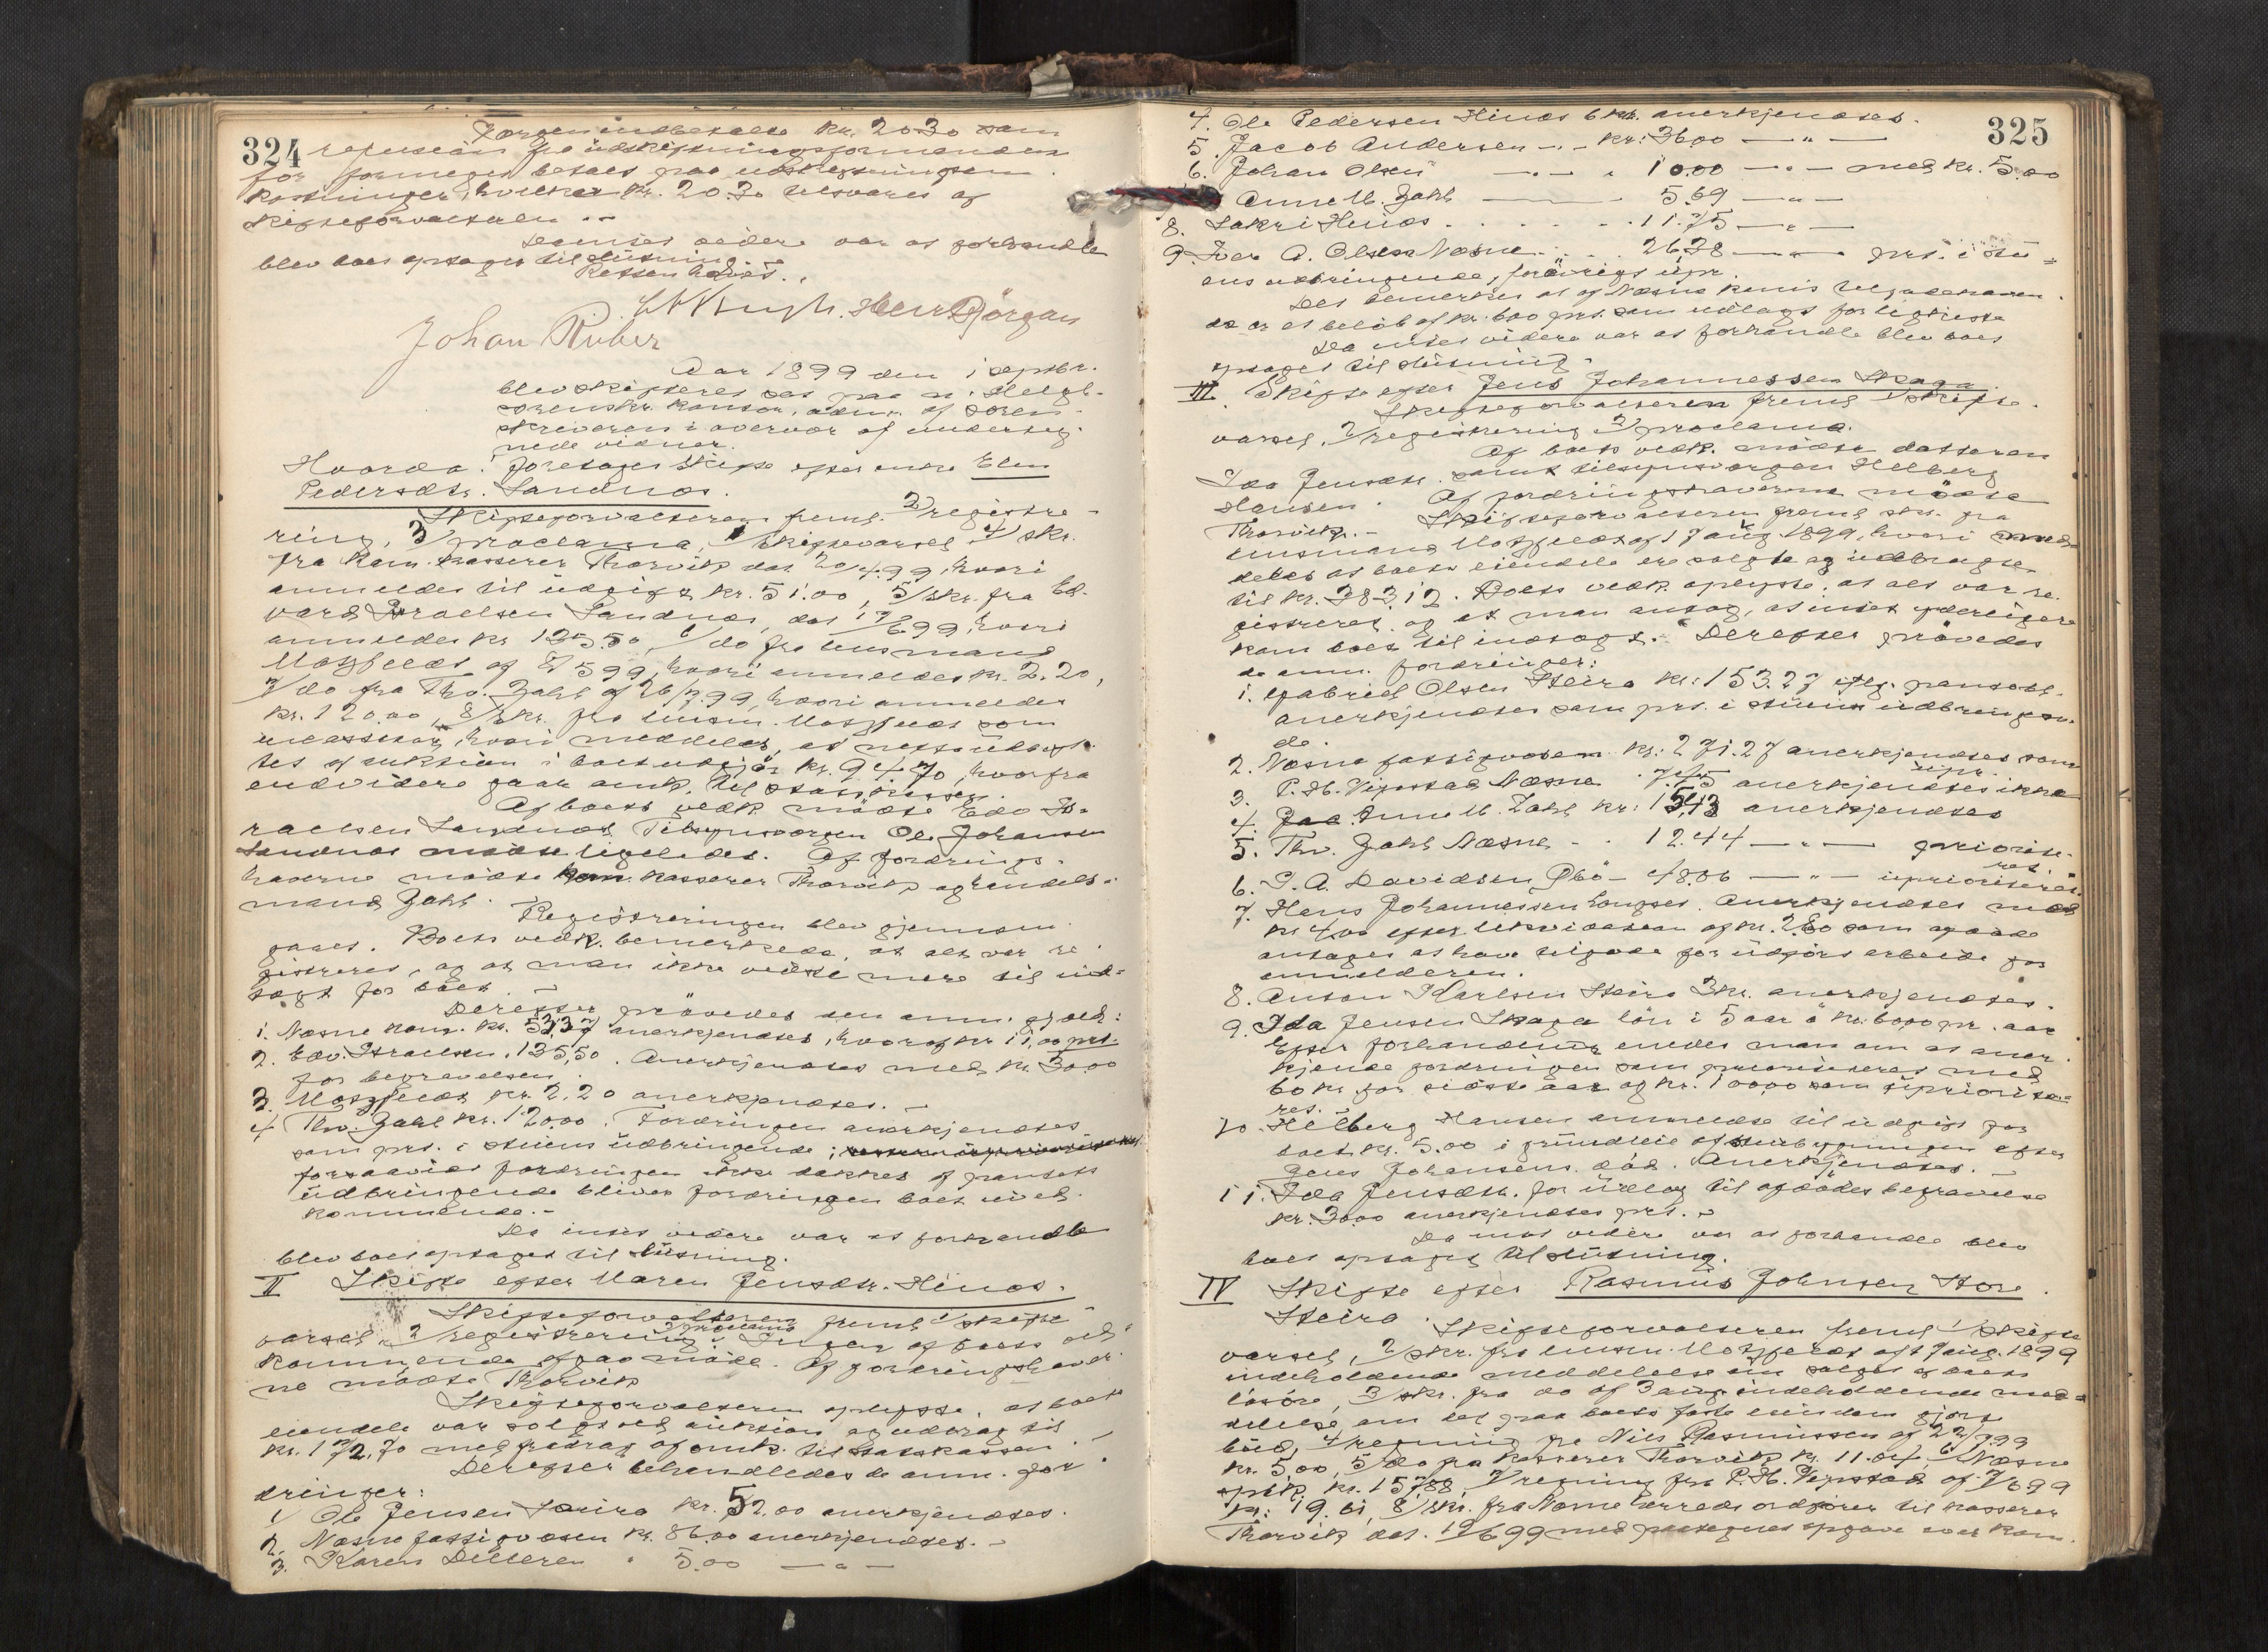 324
Jørgen indbetalte kr. 20.30 som
refusion fra udskiftningsformanden
for formeget betalt paa udskiftningsom
kostninger, hvilke kr. 20.30 tilsvares af
skifteforvalteren. -
Da intet videre var at forhandle
blev boet optaget til slutning.
Retten hævet.
Henr Børgan
Johan Riiber
Aar 1899 den 1 septbr.
blev skifteret sat paa n. Helgl.
sorenskr. kontor, adm. af soren-
skriveren i overvær af underteg-
nede vidner.
Hvorda: foretages skifte efter enke Elen
Pedersdtr. Sandnæs.
Skifteforvalteren freml. 2/ registre-
ring, 3/ proclama, 1/ skiftevarsel 4/ skr.
fra kom. kasserer Thorvik dat. 20/4 99, hvori
anmeldes til udgift kr. 51.00, 5/ skr. fra Ed-
vard Israelsen Sandnæs, dat 17/6 99, hvori
anmeldes kr 135.50, 6/ do fra lensmand
Motzfeldt af 8/5 99, hvori anmeldes kr. 2.20,
7/ do fra Thv. Zahl af 26/7.99, hvori anmeldes
kr. 120.00, 8/ skr. fra lensm. Motzfeldt som
incassator, hvori meddeles, at netto udbyt-
tet af auktion i boet udgjør kr. 94.70, hvorfra
endvidere gaar omk. til statskassen.
Af boets vedk. mødte Edv Is-
raelsen Sandnæs. Tilsynsvergen Ole Johansen
Sandnæs mødte ligeledes. Af fordrings-
haverne mødte kom. kasserer Thorvik og handels-
mand Zahl.
Registreringen blev gjennem-
gaaet. Boets vedk. bemerkede, at alt var re-
gistreret, og at man ikke vidste mere til ind-
tægt for boet. -
Derefter prøvedes den anm. gjæld:
1. Næsne kom. kr. 53,37 anerkjendtes, hvoraf kr 11,00 prt.
2. Edv. Israelsen, 135,50. Anerkjendtes med kr. 30.00
for begravelsen.
3. Motzfeldt kr. 2,20 anerkjendtes. -
4 Thv. Zahl kr. 120.00. Fordringen anerkjendtes
som prt. i stuens udbringende;
forsaavidt fordringen ikke dækkes af pantets
udbringende bliver fordringen boet uved-
kommende. -
Da intet videre var at forhandle
blev boet optaget til slutning.
II Skifte efter Maren Jensdtr. Hinæs.
Skifteforvalteren freml 1/ skifte
varsel, 2/ registrering 3/ proclama. Ingen af boets ved-
kommende afgav møde. Af fordringshaver-
ne mødte Thorvik
Skifteforvalteren oplyste, at boets
eiendele var solgt ved auktion og udbragt til
kr. 172,70 med fradrag af omk. til statskassen. -
Derefter behandledes de anm. for-
dringer:
1/ Ole Jensen kr. 52.00 anerkjendtes.
2. Næsne fattigvæsen kr. 86.00 anerkjendtes. -
3. Karen " 5.00 — " —
325
4. Ole Pedersen Hinæs 6 kr. anerkjendtes.
5. Jacob Andersen - - kr: 36.00 — " —
6. Johan Olsen — " — " 10.00 — " — med kr. 5.00
Anne M. Zahl — 5.69 — " —
8. Hinæs . . . . . 11.75 — " —
9. Iver A. Olsen Næsne . . . 26.38 — " — prt. i stu-
ens udbringende, forøvrigt upr.
Det bemerkes at af Næsne koms tilgodehaven-
de er et beløb af kr. 6.00 prt. som udlagt for ligkiste
Da intet videre var at forhandle blev boet
optaget til slutning.
III. Skifte efter Jens Johannessen Skaga.
Skifteforvalteren freml 1/ skifte-
varsel, 2/ registrering 3/ proclama.
Af boets vedk. mødte datteren
Ida Jensdtr. samt tilsynsvergen Helberg
Hansen. Af fordringshaverne mødte
Thorvik. - Skifteforvalteren freml skr. fra
lensmand Motzfeldt af 17 aug 1899, hvori med-
deles at boets eiendele ere solgte og udbragte
til kr. 383,12. Boets vedk. oplyste, at alt var re-
gistreret og at man antog, at intet yderligere
kom boet til indtægt. Derefter prøvedes
de anm. fordringer:
1. Gabriel Olsen Steiro kr: 153.27 iflg. pantobl.
anerkjendtes som prt. i stuens udbringen-
de.
2. Næsne fattigvæsen kr: 271.27 anerkjendtes som
upr.
3. P. H. Vigestad Næsne . 7.75 anerkjendtes ikke
4. Anne M. Zahl kr: 15,13 anerkjendtes
5. Thv. Zahl Næsne - . 12.44 — " — priorite-
ret.
6. J. A. Davidsen Øbø - 48.06 — " — uprioriteret.
7. Hans Johannessen Langset. Anerkjendtes med
kr 4,00 efter likvidation af kr. 2.80 som afdøde
antages at have tilgode for udført arbeide for
anmelderen.
8. Anton Karlsen Steiro 3 kr. anerkjendtes.
9. Ida Jensen Skaga løn i 5 aar à kr. 60.00 pr. aar
Efter forhandling enedes man om at aner-
kjende fordringen som prioriteret med
60 kr. for sidste aar og kr. 100,00 som upriorite-
ret. -
10. Helberg Hansen anmeldte til udgift for
boet kr. 5.00 i grundleie af stuebygningen efter
Jens Johansens død. Anerkjendtes. -
11. Ida Jensdtr. for udlæg til afdødes begravelse
kr. 30.00 anerkjendtes prt. -
Da intet videre var at forhandle blev
boet optaget til slutning.
IV Skifte efter Rasmus Johnsen Store
Steiro.
Skifteforvalteren freml 1/ skifte
varsel, 2/ skr. fra lensm. Motzfeldt af 17 aug. 1899
indeholdende meddelelse om salget af boets
løsøre, 3/ skr. fra do af 3 aug. indeholdende med-
delelse om det paa boets faste eiendom gjorte
bud, 4/ regning fra Nils Rasmussen af 22/7 99
kr. 5,00, 5/ do fra kasserer Thorvik kr. 11.04, 6/ Næsne
kr. 157.88, 7/ regning fra P. H. Vigestad af 7/6 99
kr: 19.61, 8/ skr. fra Næsne herreds ordfører til kasserer
Thorvik dat. 19/6 99 med paategnet opgave over kom.